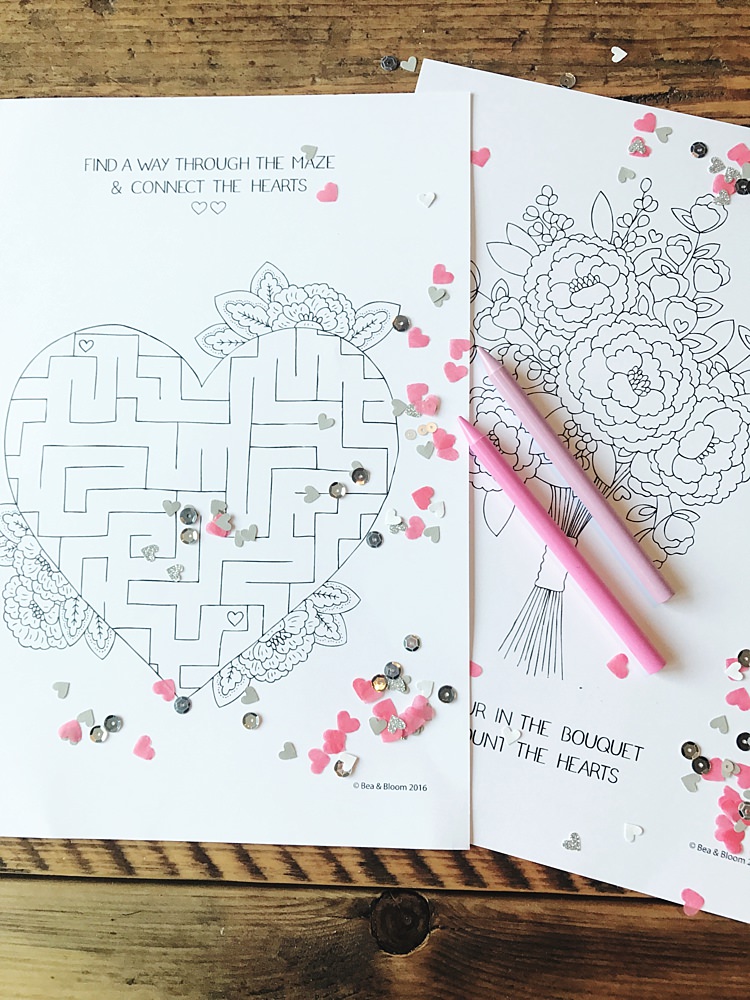 FIND A WAY THROUGH THE MAZE
& CONNECT THE HEARTS
© Bea & Bloom 2016
UR IN THE BOUQUET
OUNT THE HEARTS
© Bea & Bloom 2